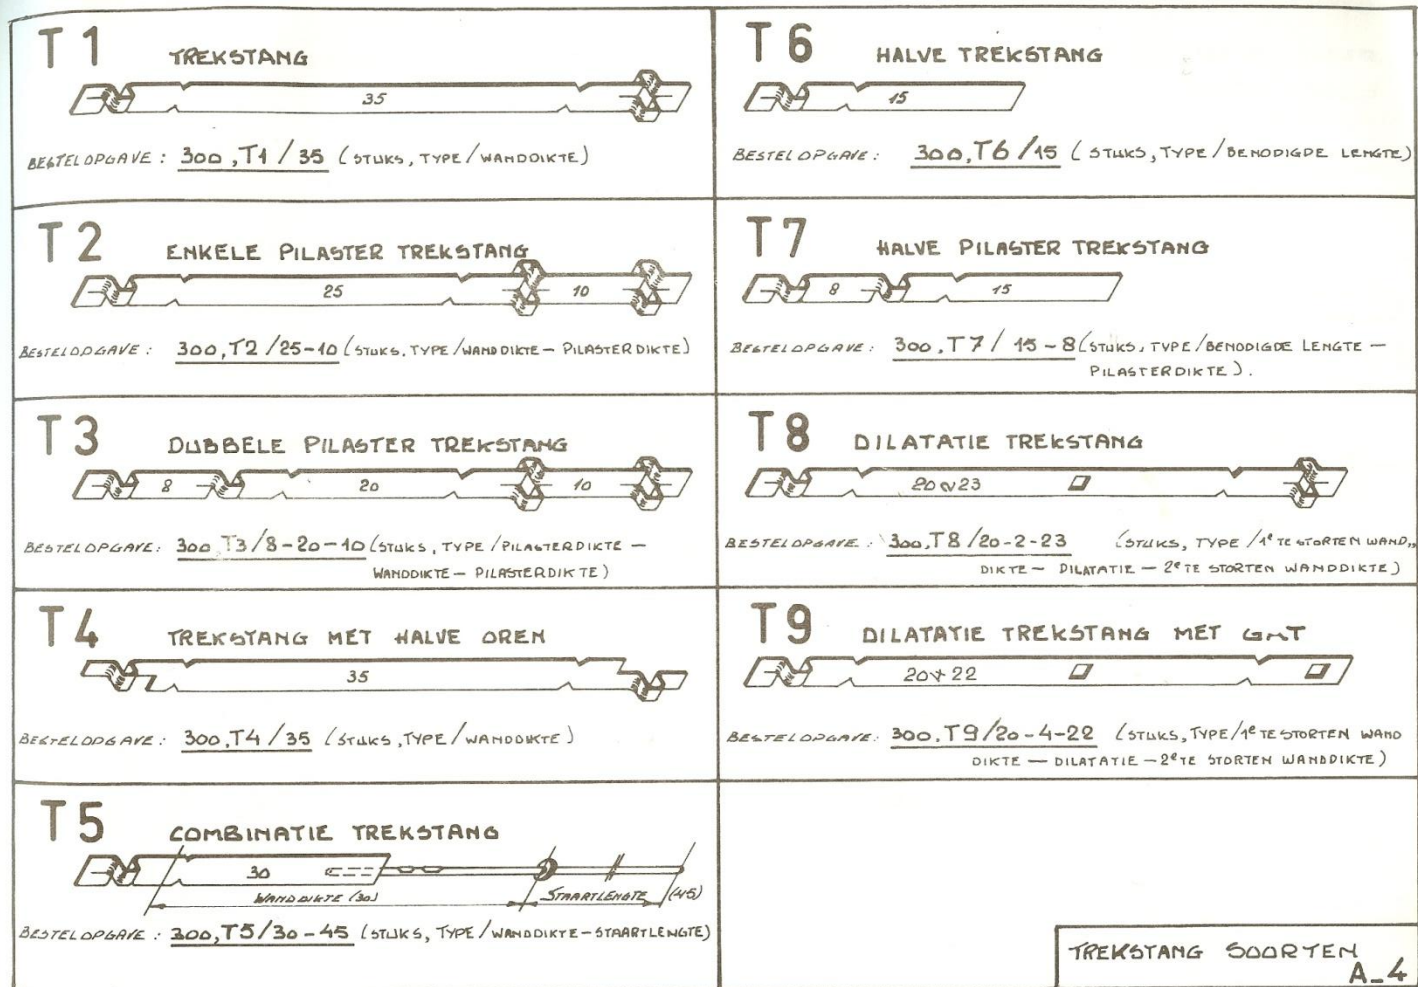 T1 TREKSTANG
35
BESTELOPGAVE: 300,T1/35 (STUKS, TYPE/WANDDIKTE)
T2 ENKELE PILASTER TREKSTANG
25 10
BESTELOPGAVE: 300,T2/25-10 (STUKS, TYPE/WANDDIKTE - PILASTERDIKTE)
T3 DUBBELE PILASTER TREKSTANG
8 20 10
BESTELOPGAVE: 300,T3/8-20-10 (STUKS, TYPE/PILASTERDIKTE -
WANDDIKTE - PILASTERDIKTE)
T4 TREKSTANG MET HALVE OREN
35
BESTELOPGAVE: 300,T4/35 (STUKS, TYPE/WANDDIKTE)
T5 COMBINATIE TREKSTANG
30
WANDDIKTE (30) STAARTLENGTE (45)
BESTELOPGAVE: 300,T5/30-45 (STUKS, TYPE/WANDDIKTE-STAARTLENGTE)
T6 HALVE TREKSTANG
15
BESTELOPGAVE: 300,T6/15 (STUKS, TYPE/BENODIGDE LENGTE)
T7 HALVE PILASTER TREKSTANG
8 15
BESTELOPGAVE: 300,T7/15-8 (STUKS, TYPE/BENODIGDE LENGTE -
PILASTERDIKTE).
T8 DILATATIE TREKSTANG
20 23
BESTELOPGAVE: 300,T8/20-2-23 (STUKS, TYPE/1e TE STORTEN WAND,,
DIKTE - DILATATIE - 2e TE STORTEN WANDDIKTE)
T9 DILATATIE TREKSTANG MET
20 22
BESTELOPGAVE: 300,T9/20-4-22 (STUKS, TYPE/1e TE STORTEN WAND
DIKTE - DILATATIE - 2e TE STORTEN WANDDIKTE)
TREKSTANG SOORTEN
A-4